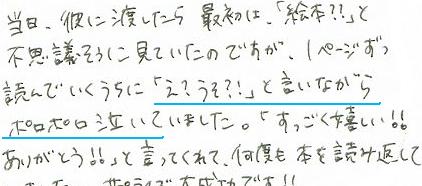 当日、彼に渡したら 最初は、「絵本??」と
不思議そうに見ていたのですが、1ページずつ
読んでいくうちに「え?うそ?!」と言いながら
ポロポロ泣いていました。「すっごく嬉しい!!
ありがとう!!」と言ってくれて、何度も本を読み返して
サプライズ大成功です!!